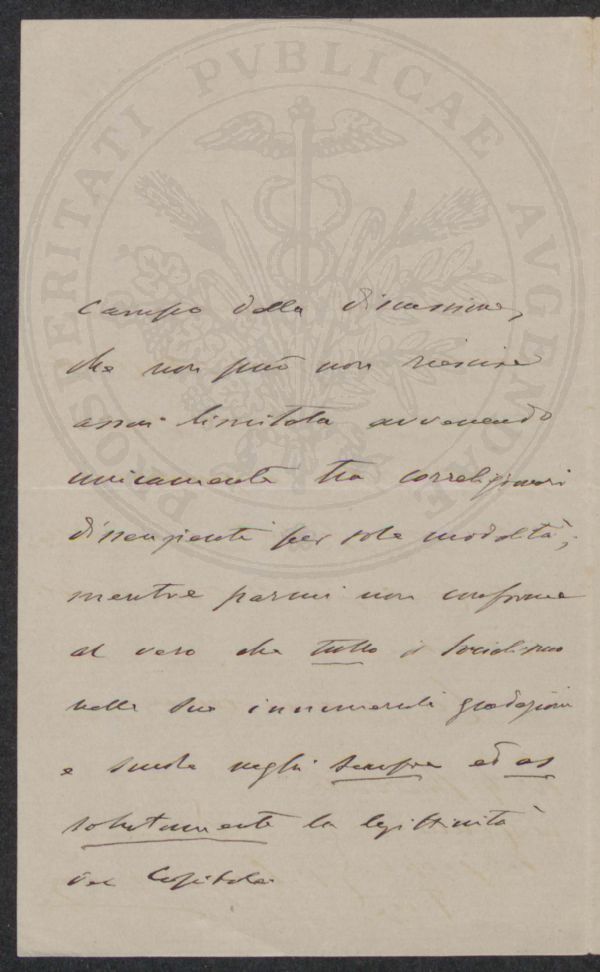 PROSPERITATI PVBLICAE AVGENDAE
campo della discussione,
che non può non riescire
assai limitata avvenendo
unicamente tra correligionari
dissenzienti per sole modalità;
mentre parmi non conforme
al vero che tutto il Socialismo
nelle sue innumerevoli gradazioni
e scuole neghi sempre ed as
solutamente la legittimità
del Capitale